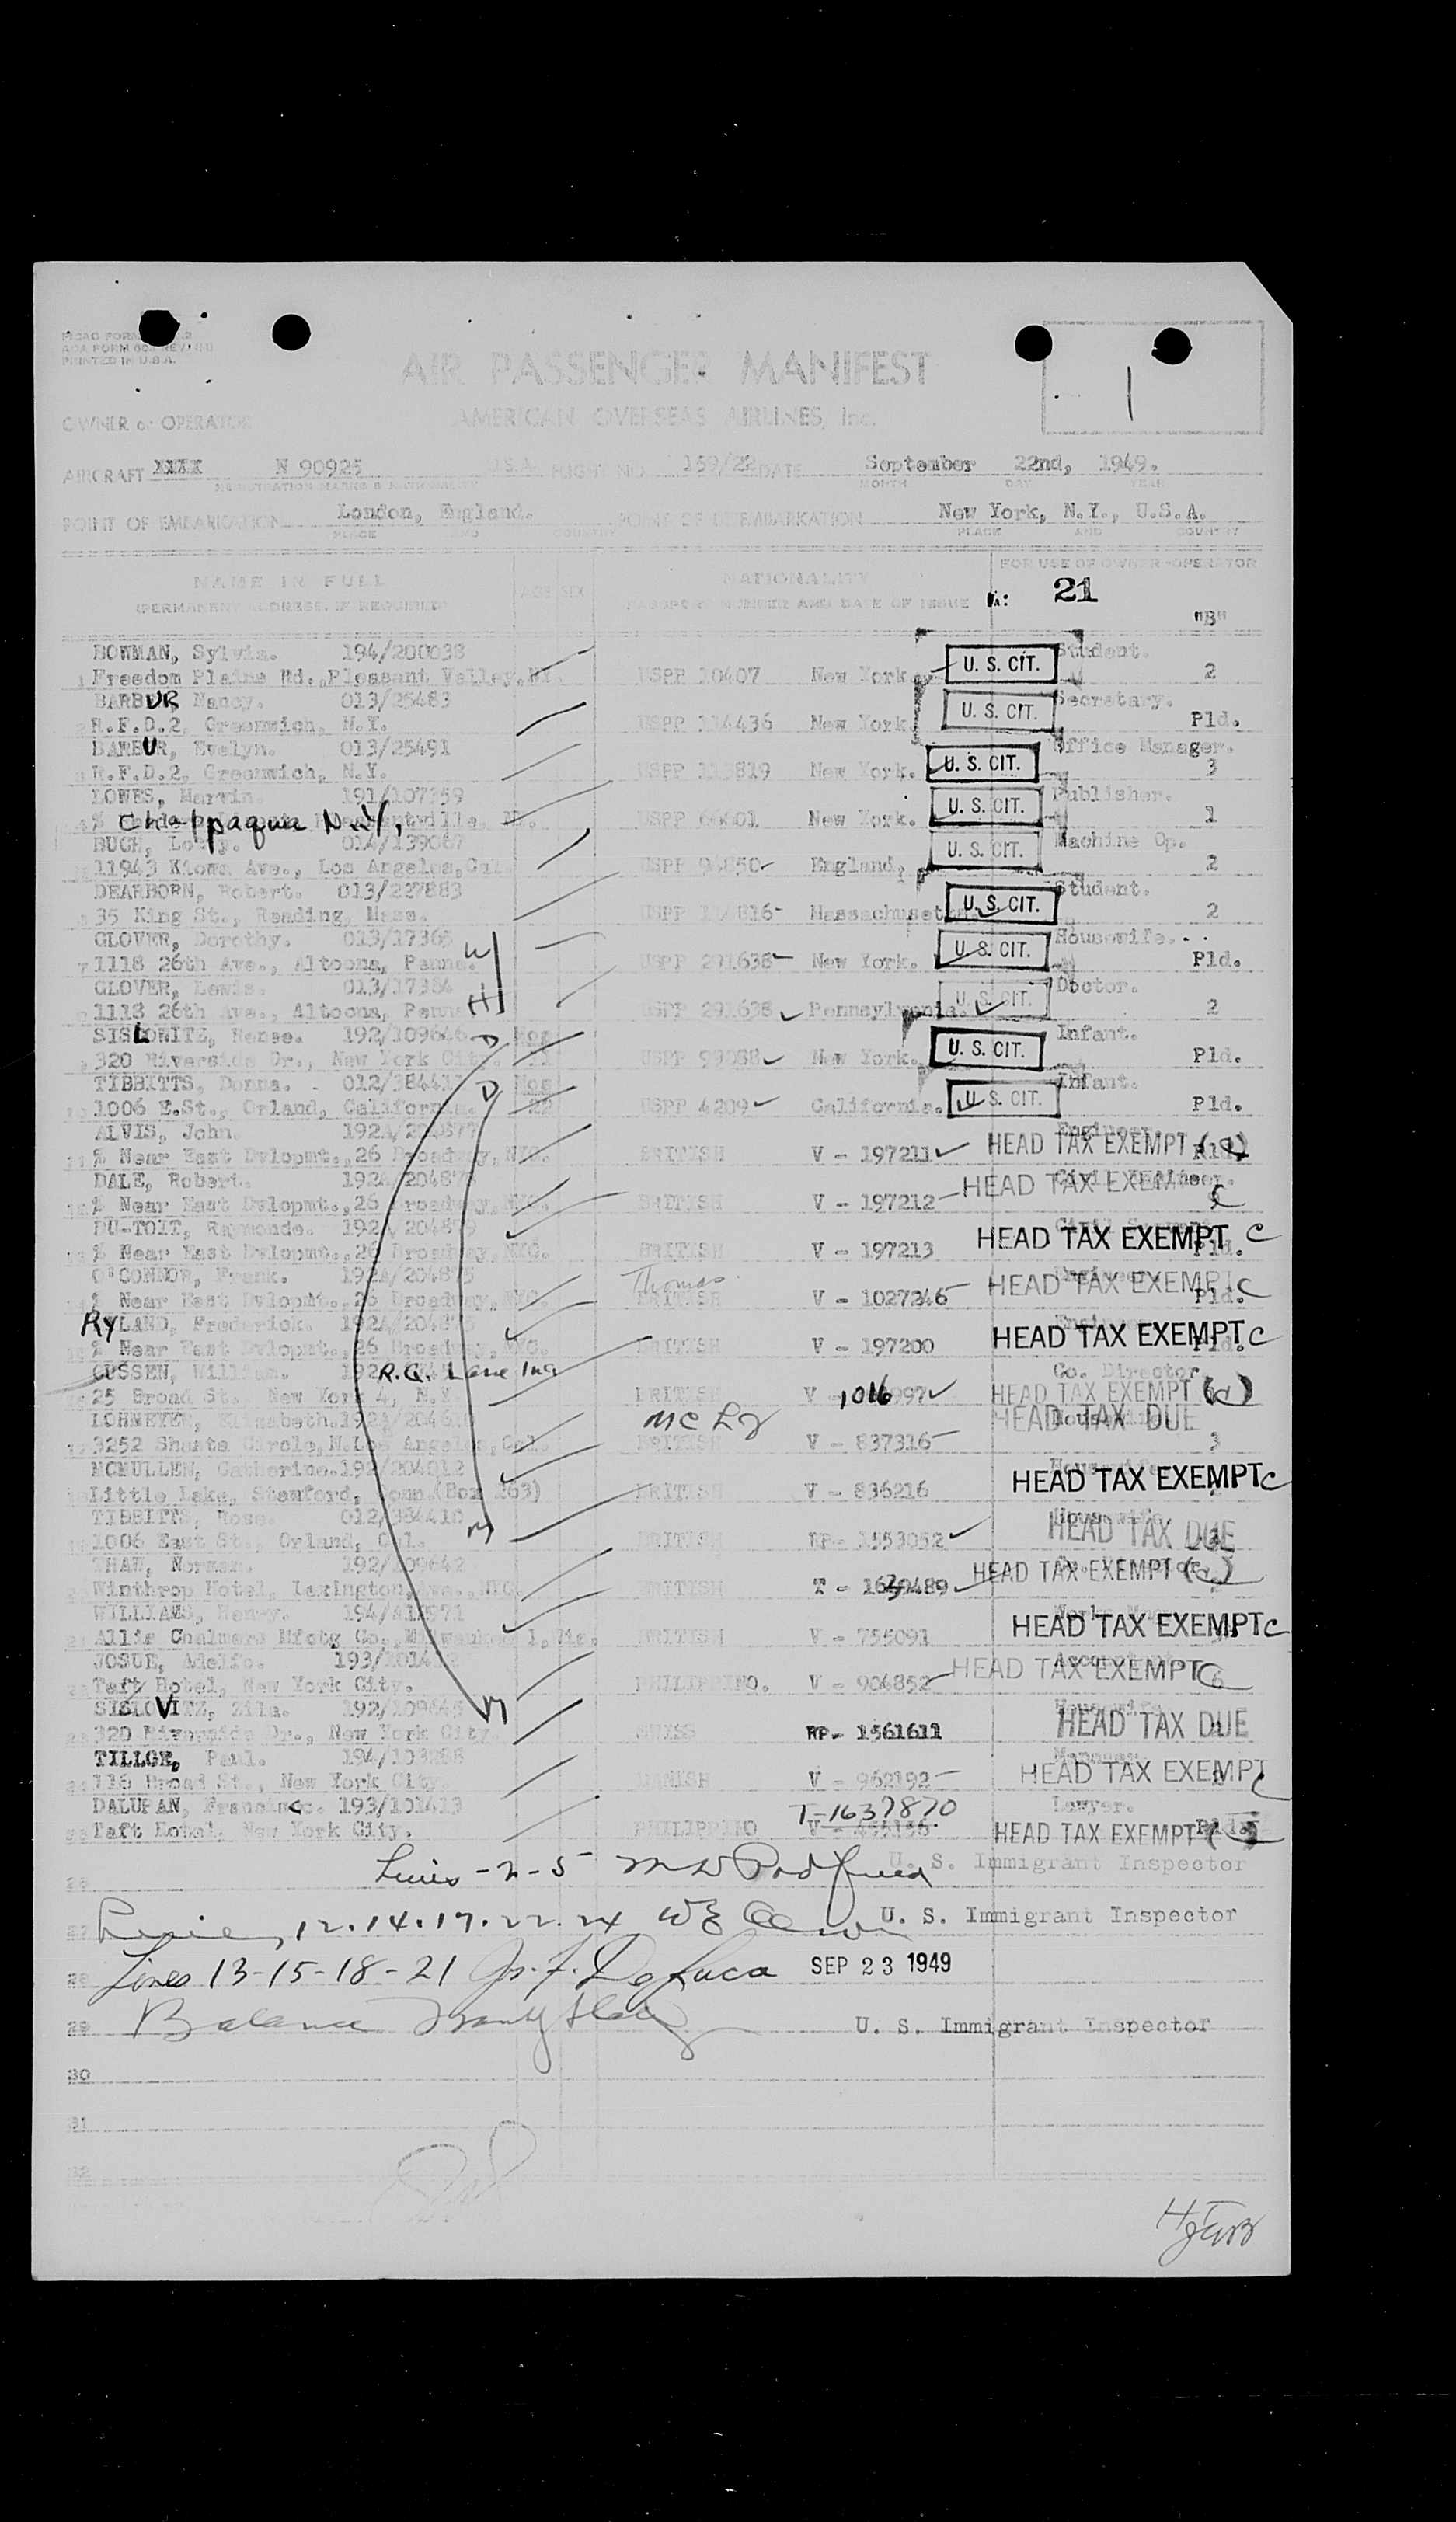 AIR PASSENGER MANIFEST
PRINTED IN U.S.A.
OWNER or OPERATOR AMERICAN OVERSEAS AIRLINES, Inc.
1
AIRCRAFT XXXX N 90925 U.S.A. FLIGHT NO. 159/22 DATE September 22nd, 1949.
REGISTRATION MARKS & NATIONALITY MONTH DAY YEAR
POINT OF EMBARKATION London, England. POINT OF DISEMBARKATION New York, N.Y., U.S.A.
PLACE AND COUNTRY PLACE AND COUNTRY
NAME IN FULL AGE SEX NATIONALITY FOR USE OF OWNER-OPERATOR
(PERMANENT ADDRESS, IF REQUIRED) PASSPORT NUMBER AND DATE OF ISSUE 21
"B"
BOWMAN, Sylvia. 194/200038 Student.
1 Freedom Plains Rd., Pleasant Valley, NY. USPP 10407 New York. U. S. CIT. 2
BARBUR, Nancy. 013/25483 Secretary.
2 R.F.D.2, Greenwich, N.Y. USPP 114436 New York. U. S. CIT. Pld.
BARBUR, Evelyn. 013/25491 Office Manager.
3 R.F.D.2, Greenwich, N.Y. USPP 113819 New York. U. S. CIT. 3
LOWES, Marvin. 191/107359 Publisher.
4 Chappaqua N.Y. USPP New York. U. S. CIT. 1
BUGH, 014/139087 Machine Op.
5 11943 Kiowa Ave., Los Angeles, Cal. USPP 94850 England. U. S. CIT. 2
DEARBORN, Robert. 013/227883 Student.
6 35 King St., Reading, Mass. USPP Massachusetts. U. S. CIT. 2
GLOVER, Dorothy. 013/17365 W Housewife.
7 1118 26th Ave., Altoona, Penna. USPP 291638 New York. U. S. CIT. Pld.
GLOVER, Lewis. 013/17364 H Doctor.
8 1118 26th Ave., Altoona, Penna. USPP 291638 Pennsylvania. U. S. CIT. 2
SISLOWITZ, Renee. 192/109646 D Mos Infant.
9 320 Riverside Dr., New York City. 11 USPP 99088 New York. U. S. CIT. Pld.
TIBBITTS, Donna. 012/384411 D Mos Infant.
10 1006 E.St., Orland, California. 22 USPP 4209 California. U. S. CIT. Pld.
ALVIS, John. Engineer.
11 % Near East Dvlopmt., 26 Broadway, NYC. BRITISH V - 197211 HEAD TAX EXEMPT Pld.
DALE, Robert. Civil Engineer.
12 % Near East Dvlopmt., 26 Broadway, NYC. BRITISH V - 197212 HEAD TAX EXEMPT C
DU-TOIT, Raymonde.
13 % Near East Dvlopmt., 26 Broadway, NYC. BRITISH V - 197213 HEAD TAX EXEMPT C Pld.
O'CONNOR, Frank. Thomas Engineer.
14 % Near East Dvlopmt., 26 Broadway, NYC. BRITISH V - 1027246 HEAD TAX EXEMPT C Pld.
RYLAND, Frederick. Engineer.
15 % Near East Dvlopmt., 26 Broadway, NYC. BRITISH V - 197200 HEAD TAX EXEMPT C Pld.
CUSSEN, William. Co. Director.
16 25 Broad St., New York 4, N.Y. BRITISH V 997 HEAD TAX EXEMPT
LOHMEYER, Elizabeth. Housewife.
17 3252 Shasta Circle, N. Los Angeles, Cal. BRITISH V - 837316 HEAD TAX DUE 3
MCMULLEN, Catherine. 192/204012 Housewife.
18 Little Lake, Stamford, Conn. (Box 263) BRITISH V - 836216 HEAD TAX EXEMPT C
TIBBITTS, Rose. 012/384410 M Housewife.
19 1006 East St., Orland, Cal. BRITISH RP- 1553052 HEAD TAX DUE
THAW, Norman. 192/109642
20 Winthrop Hotel, Lexington, Ave., NYC. BRITISH T - HEAD TAX EXEMPT
WILLIAMS, Henry.
21 Allis Chalmers Mfctg Co., Milwaukee 1, Wis. BRITISH V - 755091 HEAD TAX EXEMPT C
JOSUE, Adolfo. Accountant.
22 Taft Hotel, New York City. PHILIPPINO. V - 904852 HEAD TAX EXEMPT C
SISLOVITZ, Zila. 192/109645 M Housewife.
23 320 Riverside Dr., New York City. SWISS RP- 1561611 HEAD TAX DUE
TILLGE, Paul. Manager.
24 116 Broad St., New York City. DANISH V - 962192 HEAD TAX EXEMPT C
DALUPAN, Francisc. 193/101413 T-1637870 Lawyer.
25 Taft Hotel, New York City. PHILIPPINO HEAD TAX EXEMPT Pld.
26 Lines -2-5 U. S. Immigrant Inspector
27 12.14.17.22.24 U. S. Immigrant Inspector
28 Lines 13-15-18-21 DeLuca SEP 23 1949
29 Balance U. S. Immigrant Inspector
30
31
32